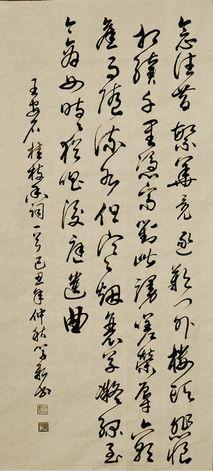 念往昔繁華競逐歎門外樓頭悲恨
相續千憑高對此謾嗟榮辱六朝
舊事隨流水但寒煙衰草凝綠至
今商女時時猶唱後庭遺曲
王安石桂枝香詞一首己丑年仲秋書